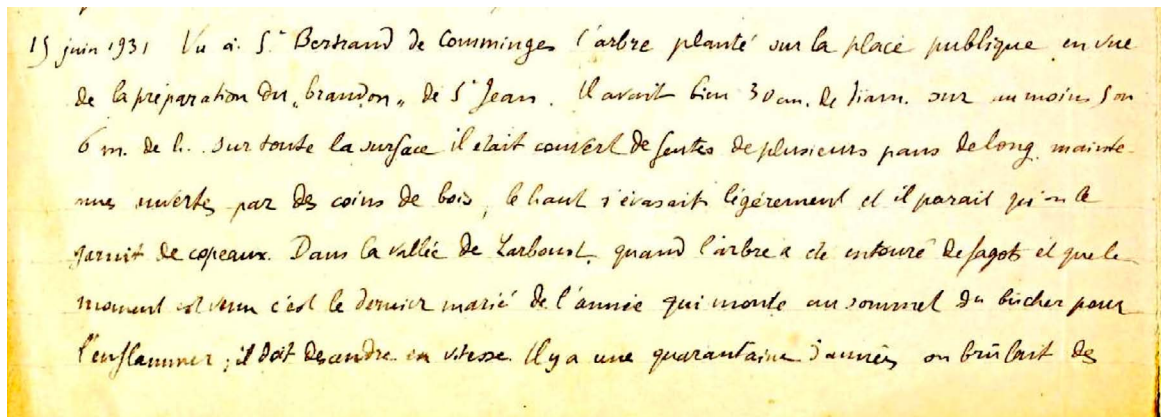 15 juin 1931 Vu à St Bertrand de Comminges l'arbre planté sur la place publique en vue
de la préparation du „brandon„ de St Jean. Il avait bien 30 cm. de diam. sur au moins 5 ou
6 m. de h. sur toute la surface il était couvert de fentes de plusieurs pans de long mainte-
nues ouvertes par des coins de bois, le haut s'évasait légèrement et il parait qu'on le
garnit de copeaux. Dans la vallée de Larboust, quand l'arbre a été entouré de fagots et que le
moment est venu c'est le dernier marié de l'année qui monte au sommet du bûcher pour
l'enflammer ; il doit descendre en vitesse. Il y a une quarantaine d'années on brûlait des